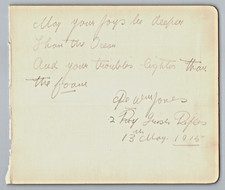 May your joys be deeper
Than the Ocean
And your troubles lighter than
the foam
Jones
2 Roy Irish Rifles
13th May. 1915